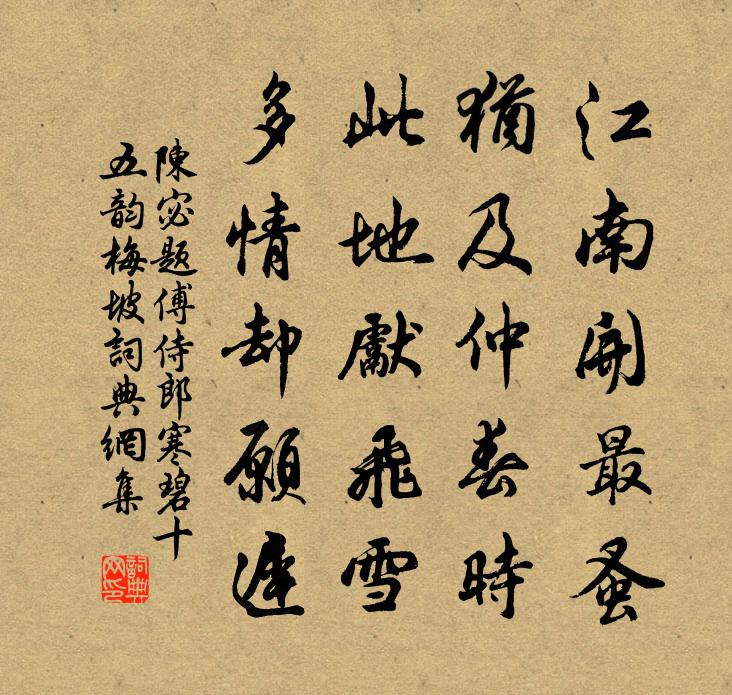 江南開最蚤
猶及仲春時
此地獻飛雪
多情却願遲
陳宓題傅侍郎寒碧十
五韵梅坡詞典網集
詞典网印